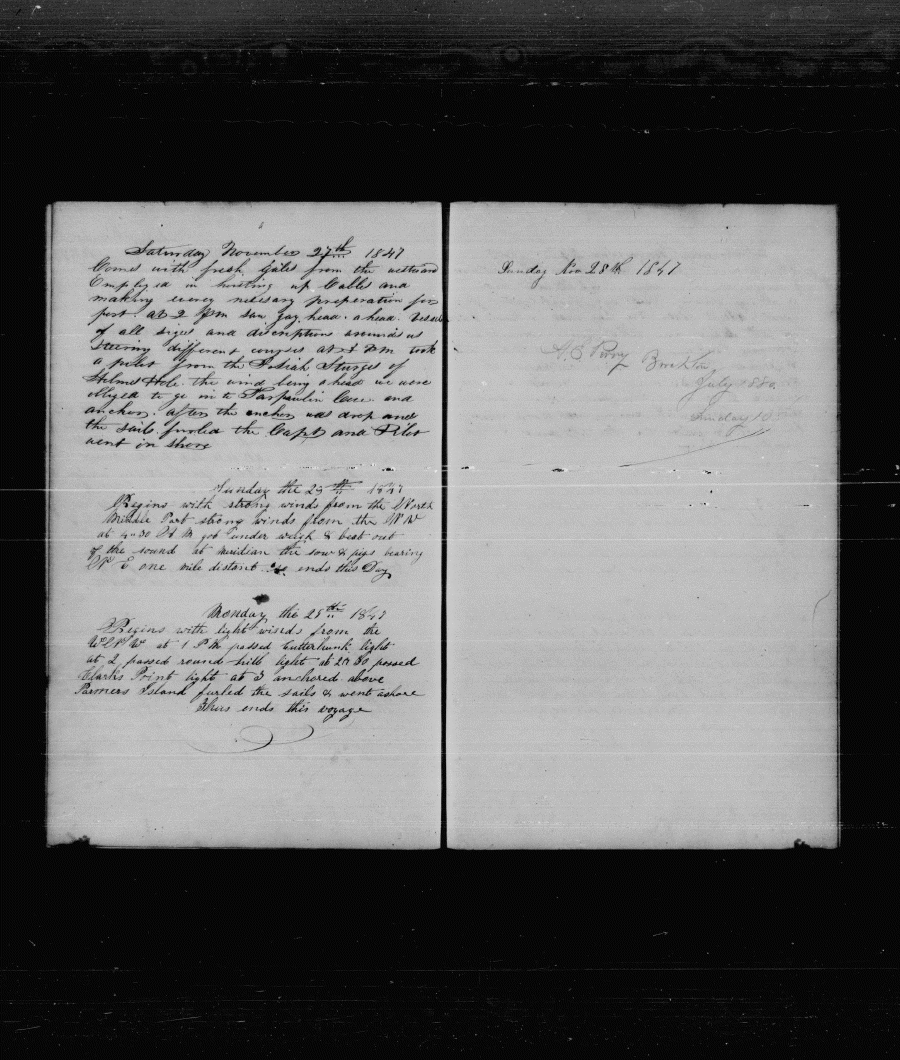 Saturday November 27th 1847
Comes with fresh gales from the westward
Employed in hoisting up Cables and
making every necisary preperation for
port. at 2 Pm saw Gay head. ahead. Vessels
of all sizes and discriptions around us
steering different courses at 4 Pm took
a pilot from the Josiah Sturges of
Holmes Hole. the wind being ahead we were
obliged to go in to Tarpaulin Cove and
anchor. after the anchor was drop and
the sails furled the Capt and Pilot
went in shore
Sunday the 28th 1847
Begins with strong winds from the North
Middle Part strong winds from the NW
at 4-30 A M got under weigh & beat out
of the sound at meridian the sow & pigs bearing
N E one mile distant So ends this Day
Monday the 29th 1847
Begins with light winds from the
W N W at 1 P M passed Cutterhunk light
at 2 passed round hill light at 2-30 passed
Clarks Point light at 3 anchored above
Parmers Island furled the sails & went ashore
Thus ends this voyage
Sunday Nov 28th 1847
Perry Brockton
July 1880
Sunday